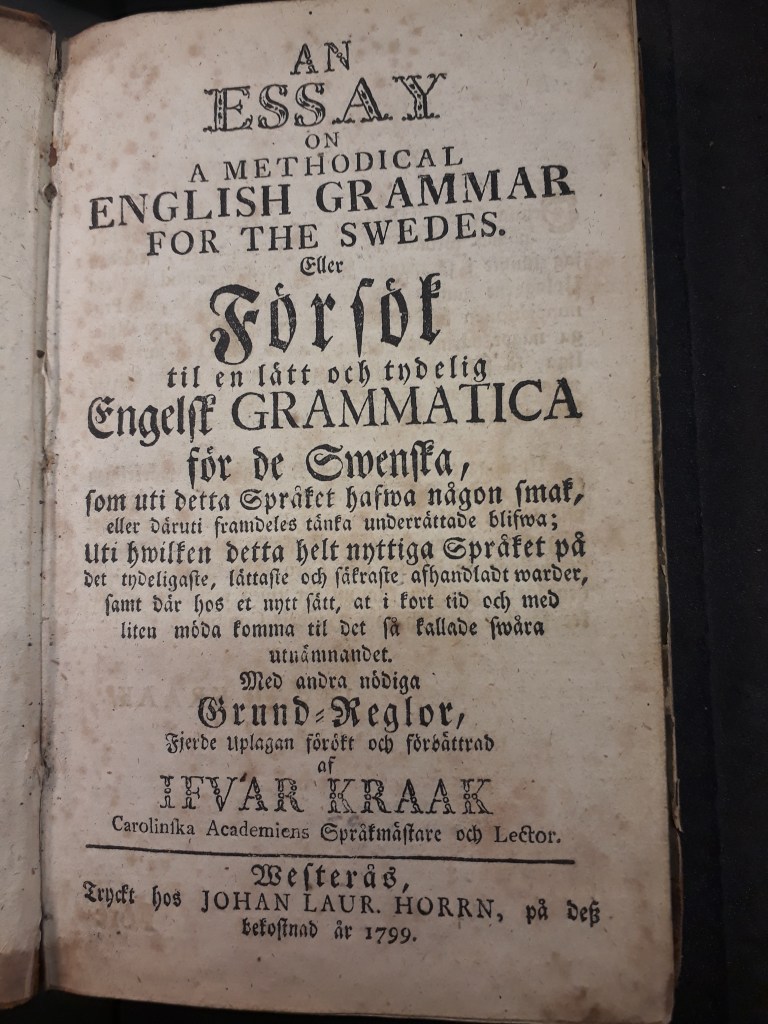 AN
ESSAY
ON
A METHODICAL
ENGLISH GRAMMAR
FOR THE SWEDES.
Eller
Försök
til en lätt och tydelig
Engelsk GRAMMATICA
för de Swenska,
som uti detta Språket hafwa någon smak,
eller däruti framdeles tänka underrättade blifwa;
Uti hwilken detta helt nyttiga Språket på
det tydeligaste, lättaste och säkraste afhandladt warder,
samt där hos et nytt sätt, at i kort tid och med
liten möda komma til det så kallade swåra
utnämnandet.
Med andra nödiga
Grund-Reglor,
Fjerde Uplagan förökt och förbättrad
af
IFVAR KRAAK
Carolinska Academiens Språkmästare och Lector.
Westerås,
Tryckt hos JOHAN LAUR. HORRN, på deß
bekostnad år 1799.